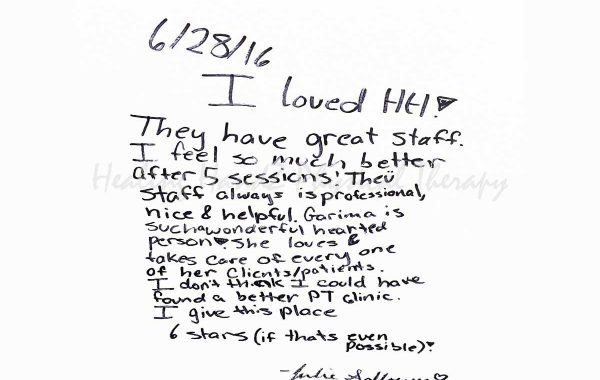 6/28/16
I loved HH!
They have great staff.
I feel so much better
after 5 sessions! Their
staff always is professional,
nice & helpful. Garima is
such a wonderful hearted
person! She loves &
takes care of every one
of her clients/patients.
I don't think I could have
found a better PT clinic.
I give this place
6 stars (if thats even
possible)!
-Julie